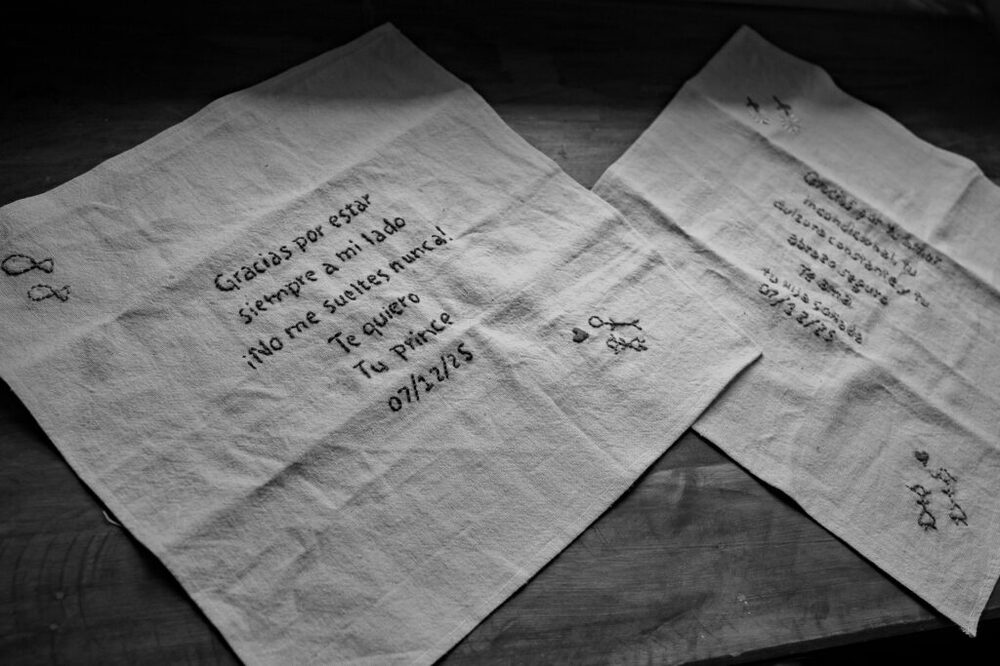 Gracias por estar
siempre a mi lado
¡No me sueltes nunca!
Te quiero
Tu Prince
07/12/25
Gracias por
incondicional, tu
dulzura constante y tu
abrazo seguro
Te ama
tu hija
07/12/25